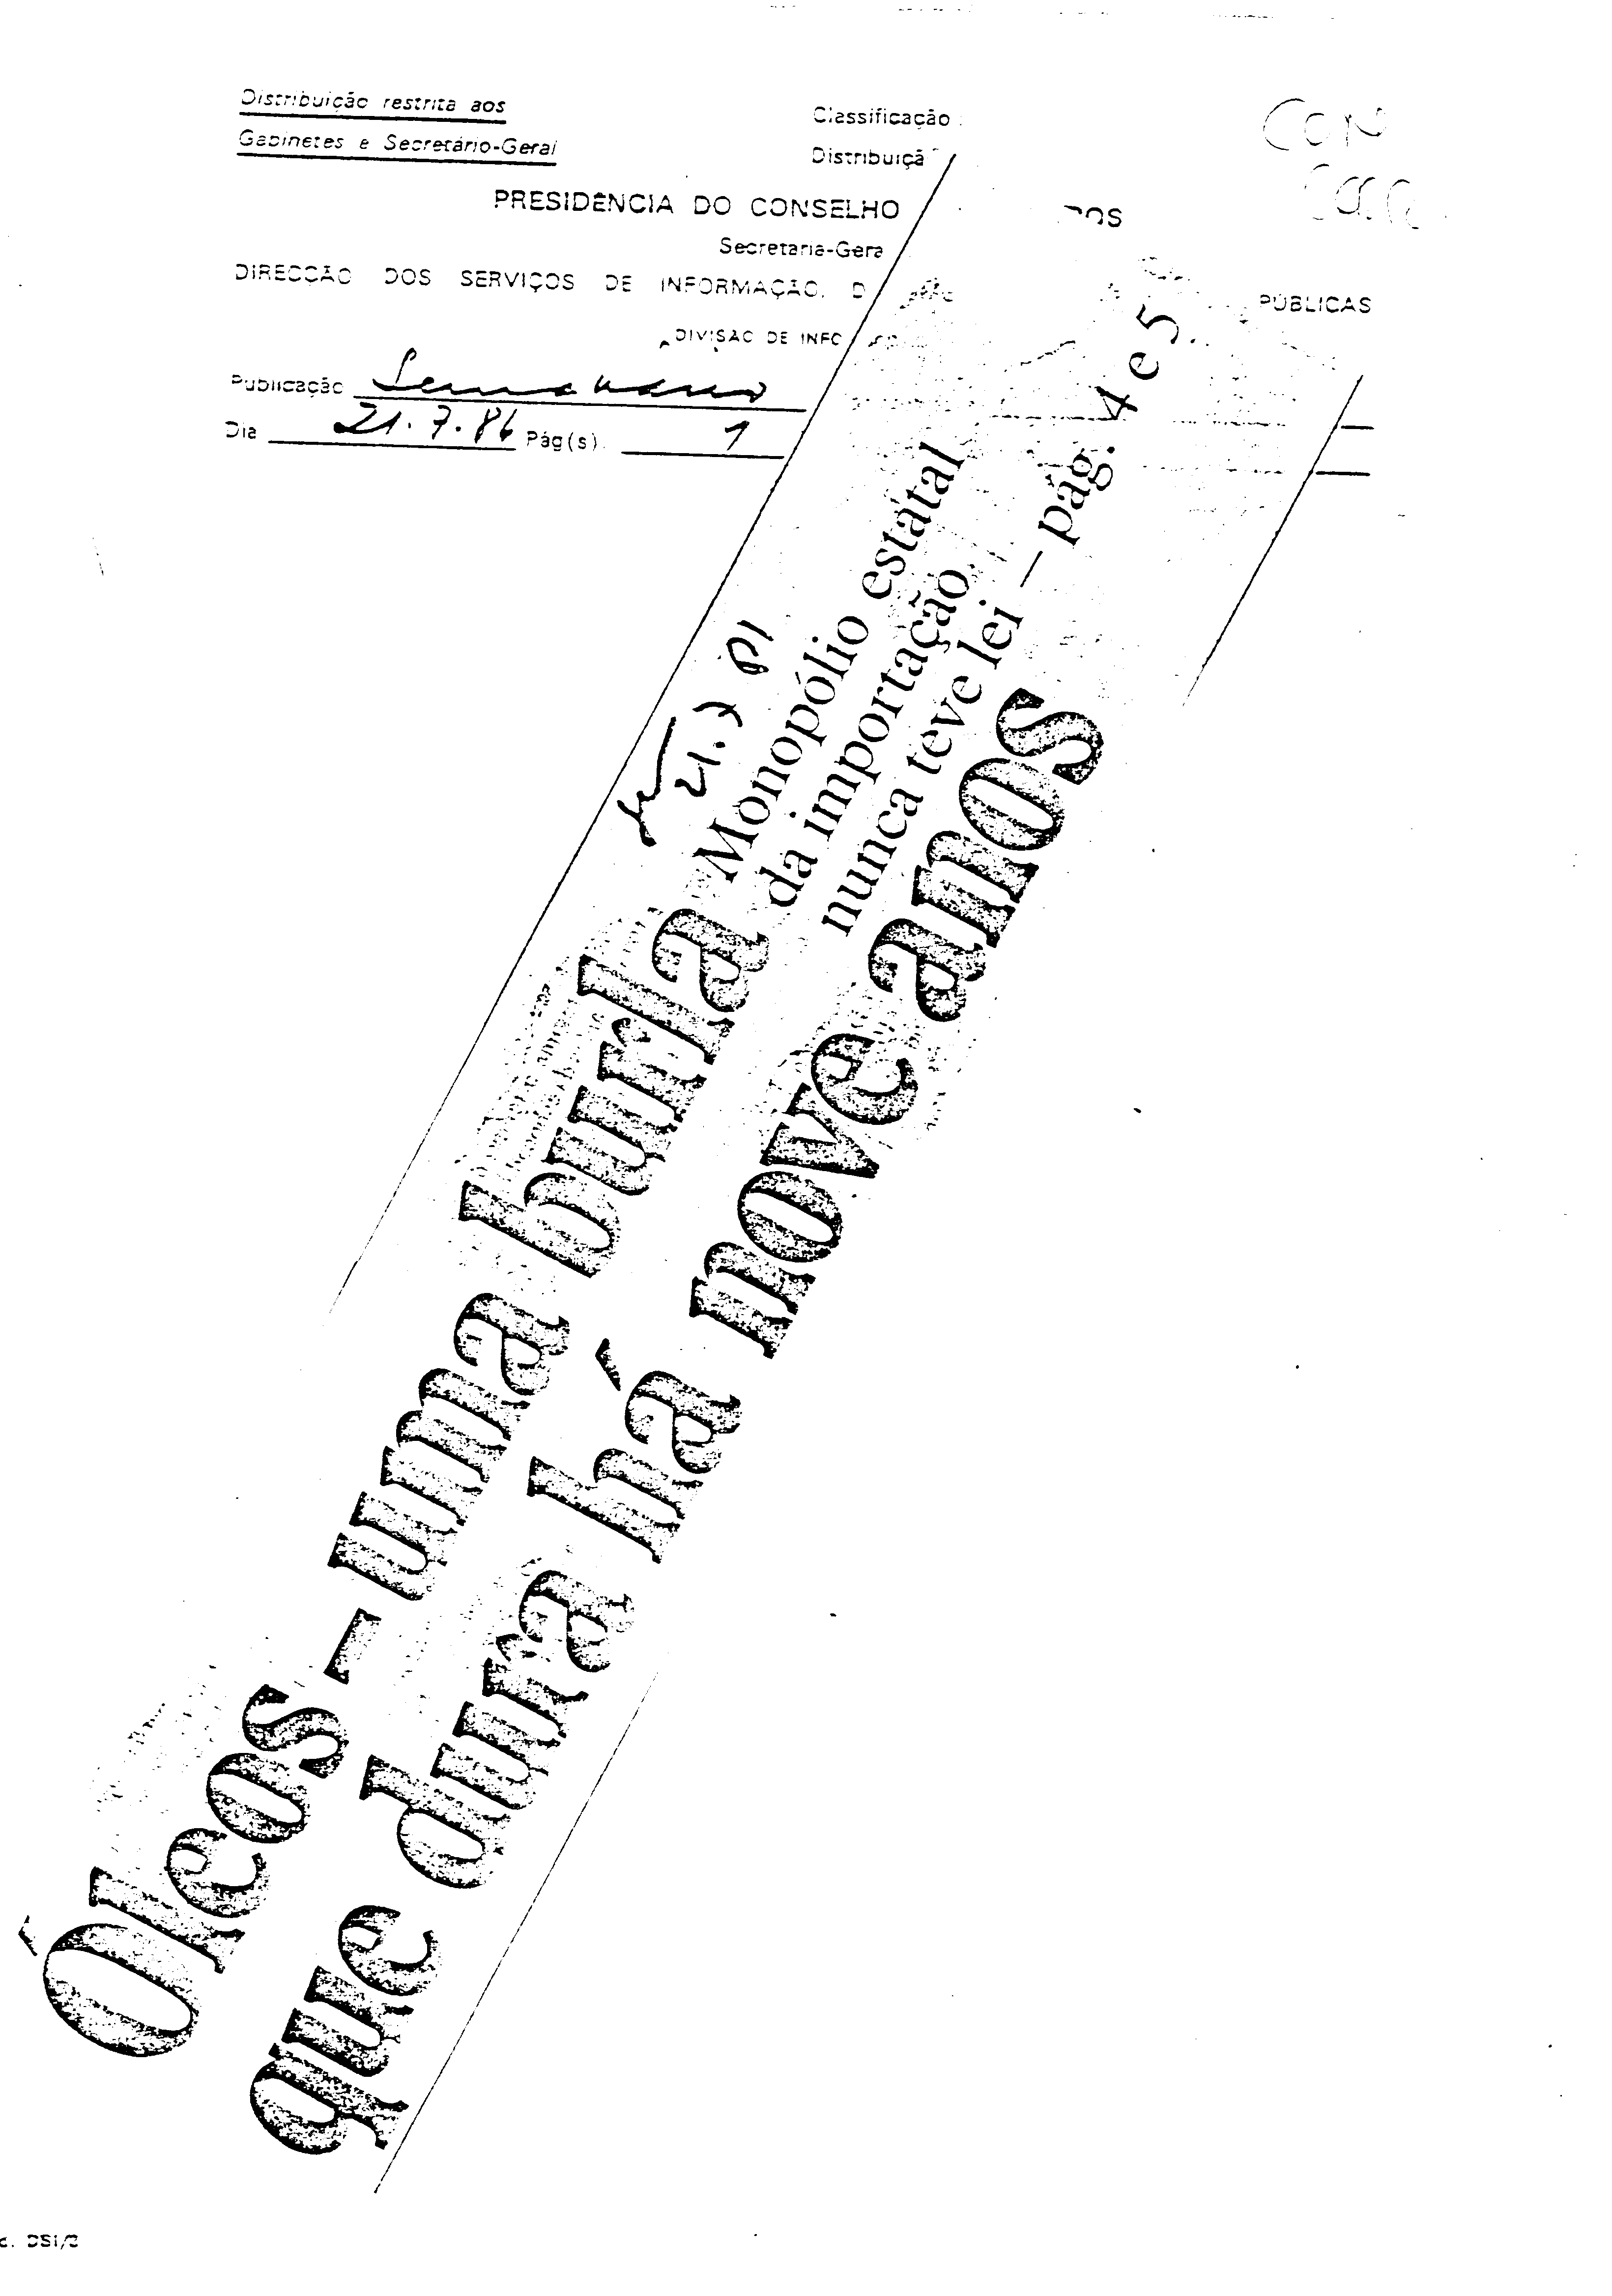 Distribuição restrita aos
Gabinetes e Secretário-Geral
Classificação
Distribuiçã
PRESIDÊNCIA DO CONSELHO
Secretaria-Gera
DIRECÇÃO DOS SERVIÇOS DE INFORMAÇÃO, D PÚBLICAS
DIVISÃO DE INFO
Publicação Semanário
Dia 21.7.86 Pág(s). 1
21.7
Óleos – uma burla
que dura há nove anos
Monopólio estatal
da importação
nunca teve lei – pág. 4 e 5
DSI/3